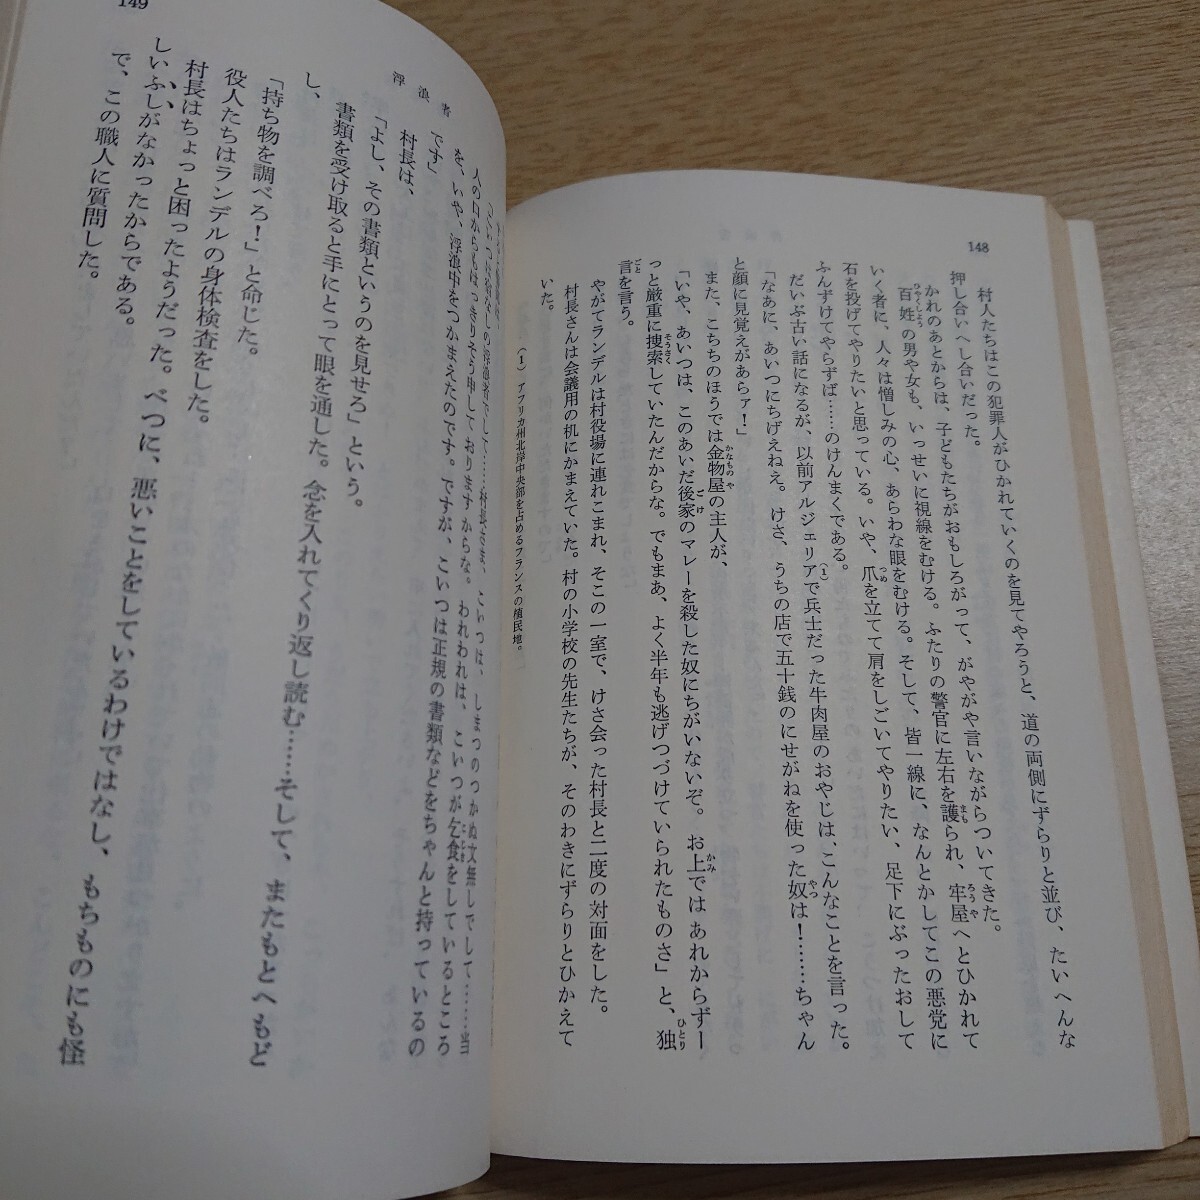 148
村人たちはこの犯罪人がひかれていくのを見てやろうと、道の両側にずらりと並び、たいへんな
押し合いへし合いだった。
かれのあとからは、子どもたちがおもしろがって、がやがや言いながらついてきた。
百姓の男や女も、いっせいに視線をむける。ふたりの警官に左右を護られ、牢屋へとひかれて
いく者に、人々は憎しみの心、あらわな眼をむける。そして、皆一線に、なんとかしてこの悪党に
石を投げてやりたいと思っている。いや、爪を立てて肩をしごいてやりたい、足下にぶったおして
ふんずけてやらずば……のけんまくである。
だいぶ古い話になるが、以前アルジェリアで兵士だった牛肉屋のおやじは、こんなことを言った。
「なあに、あいつにちげえねえ。けさ、うちの店で五十銭のにせがねを使った奴は！……ちゃん
と顔に見覚えがあらァ！」
また、こちちのほうでは金物屋の主人が、
「いや、あいつは、このあいだ後家のマレーを殺した奴にちがいないぞ。お上では あれからずー
っと厳重に捜索していたんだからな。でもまあ、よく半年も逃げつづけていられたものさ」と、独
言を言う。
やがてランデルは村役場に連れこまれ、そこの一室で、けさ会った村長と二度の対面をした。
村長さんは会議用の机にかまえていた。村の小学校の先生たちが、そのわきにずらりとひかえて
いた。
（1） アフリカ州北岸中央部を占めるフランスの植民地。
149
浮浪者
人の口からもはっきりそう申しておりますからな。われわれは、こいつが乞食をしているところ
を、いや、浮浪中をつかまえたのです。ですが、こいつは正規の書類などをちゃんと持っているの
です」
村長は、
「よし、その書類というのを見せろ」という。
書類を受け取ると手にとって眼を通した。念を入れてくり返し読む……そして、またもとへもど
し、
「持ち物を調べろ！」と命じた。
役人たちはランデルの身体検査をした。
村長はちょっと困ったようだった。べつに、悪いことをしているわけではなし、もちものにも怪
しいふしがなかったからである。
で、この職人に質問した。